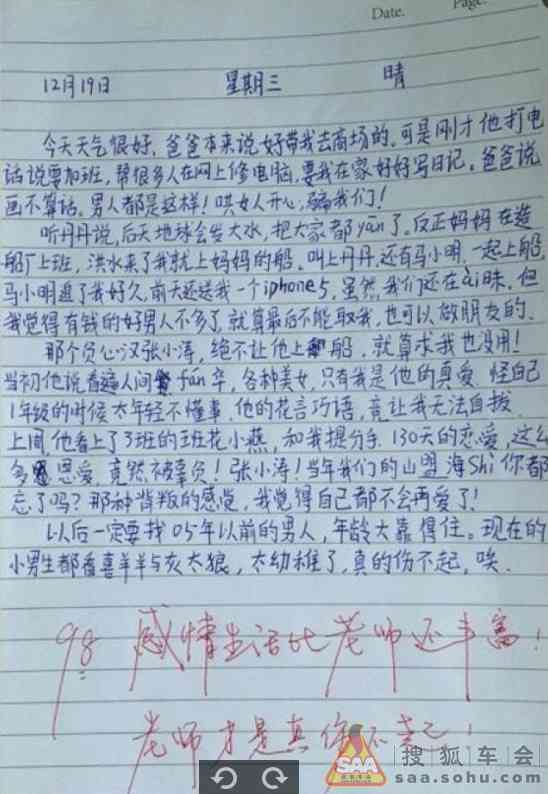 Date. Page.
12月19日 星期三 晴
今天天气很好，爸爸本来说好带我去商场的。可是刚才他打电
话说要加班，帮很多人在网上修电脑，要我在家好好写日记。爸爸说
画不算话。男人都是这样！哄女人开心，骗我们！
听丹丹说，后天地球会发大水，把大家都yān了。反正妈妈在造
船厂上班，洪水来了我就上妈妈的船。叫上丹丹，还有马小明，一起上船，
马小明追了我好久，前天还送我一个iphone5，虽然，我们还在ài昧。但
我觉得有钱的好男人不多了，就算最后不能取我，也可以做朋友的。
那个负心汉张小涛，绝不让他上船，就算求我也没用！
当初他说看遍人间fán华，各种美女，只有我是他的真爱。怪自己
1年级的时候太年轻不懂事，他的花言巧语，竟让我无法自拔。
上周，他看上了3班的班花小燕，和我提分手，130天的恋爱，这么
多恩爱，竟然被辜负！张小涛！当年我们的山盟海Shì你都
忘了吗？那种背叛的感觉，我觉得自己都不会再爱了！
以后一定要找05年以前的男人，年龄大靠得住。现在的
小男生都看喜羊羊与灰太狼，太幼稚了，真的伤不起，唉。
98 感情生活比老师还丰富！
老师才是真伤不起！
SAA 搜狐车会
saa.sohu.com